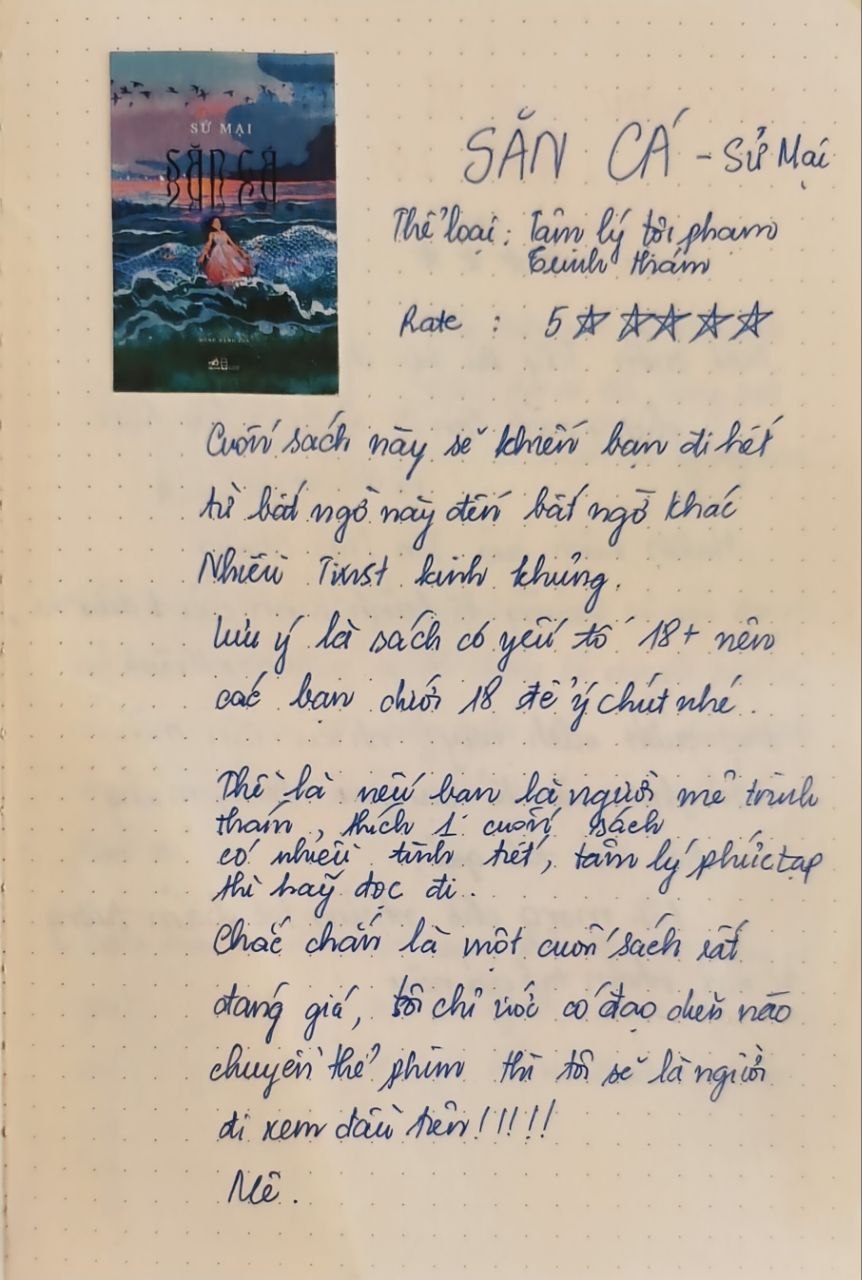 SỬ MẠI
SĂN CÁ
SĂN CÁ - Sử Mại
Thể loại : Tâm lý tội phạm
Trinh thám
Rate : 5 ☆ ☆ ☆ ☆ ☆
Cuốn sách này sẽ khiến bạn đi hết
từ bất ngờ này đến bất ngờ khác
Nhiều Twist kinh khủng.
Lưu ý là sách có yếu tố 18+ nên
các bạn dưới 18 để ý chút nhé.
Thế là nếu bạn là người mê trinh
thám, thích 1 cuốn sách
có nhiều tình tiết, tâm lý phức tạp
thì hãy đọc đi..
Chắc chắn là một cuốn sách rất
đáng giá, tôi chỉ ước có đạo diễn nào
chuyển thể phim thì tôi sẽ là người
đi xem đầu tiên!!!!!
Mê.